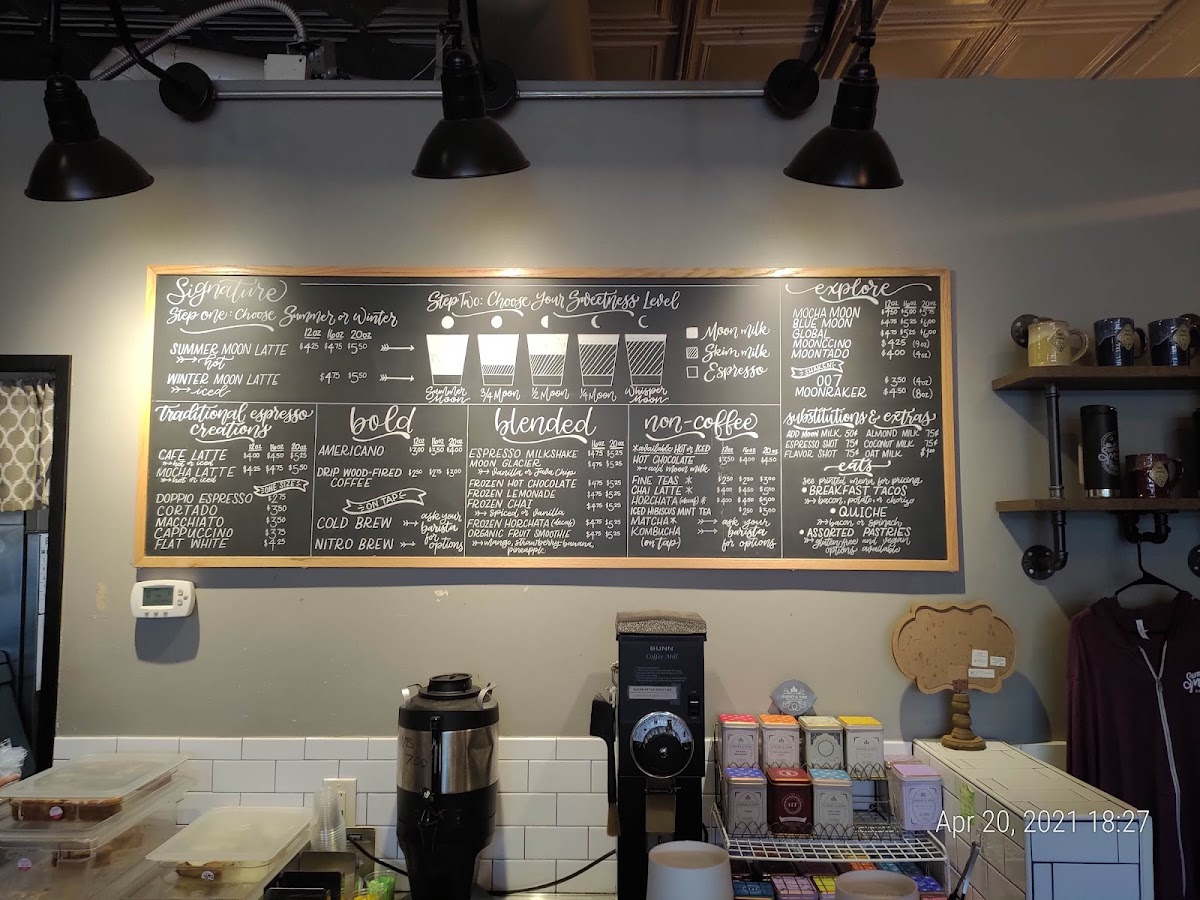 Signature
Step one: Choose Summer or Winter
12oz 16oz 20oz
SUMMER MOON LATTE $4.25 $4.75 $5.50
hot
WINTER MOON LATTE $4.75 $5.50
iced
Step Two: Choose Your Sweetness Level
Summer Moon
3/4 Moon
1/2 Moon
1/4 Moon
Whisper Moon
Moon milk
Skim milk
Espresso
explore
12oz 16oz 20oz
MOCHA MOON $4.50 $5.00 $5.75
BLUE MOON $4.75 $5.25 $6.00
GLOBAL $4.75 $5.25 $6.00
MOONCCINO $4.25 (9oz)
MOONTADO $4.00 (4oz)
007 $3.50 (4oz)
MOONRAKER $4.50 (8oz)
traditional espresso
creations
12oz 16oz 20oz
CAFE LATTE $4.00 $4.50 $5.25
hot or iced
MOCHA LATTE $4.25 $4.75 $5.50
hot or iced
ONE SIZE
DOPPIO ESPRESSO $2.75
CORTADO $3.50
MACCHIATO $3.50
CAPPUCCINO $3.75
FLAT WHITE $4.25
bold
12oz 16oz 20oz
AMERICANO $3.00 $3.50 $4.00
DRIP WOOD-FIRED $2.50 $2.75 $3.00
COFFEE
ON TAP
COLD BREW
NITRO BREW
ask your
barista
for
options
blended
16oz 20oz
ESPRESSO MILKSHAKE $4.75 $5.25
MOON GLACIER $4.75 $5.25
vanilla or Java Chip
FROZEN HOT CHOCOLATE $4.75 $5.25
FROZEN LEMONADE $4.75 $5.25
FROZEN CHAI $4.75 $5.25
spiced or vanilla
FROZEN HORCHATA (decaf) $4.75 $5.25
ORGANIC FRUIT SMOOTHIE $4.75 $5.25
mango, strawberry-banana,
pineapple
non-coffee
*available HOT or ICED 12oz 16oz 20oz
HOT CHOCOLATE $3.50 $4.00 $4.50
add moon milk
FINE TEAS * $2.50 $2.50 $3.00
CHAI LATTE *
HORCHATA (decaf) *
ICED HIBISCUS MINT TEA $2.50 $3.00
MATCHA *
KOMBUCHA
(on tap)
ask your
barista
for options
substitutions & extras
ADD MOON MILK 50¢ ALMOND MILK 75¢
ESPRESSO SHOT 75¢ COCONUT MILK 75¢
FLAVOR SHOT 75¢ OAT MILK $1.00
eats
see printed menu for pricing
• BREAKFAST TACOS
bacon, potato or chorizo
• QUICHE
bacon or spinach
• ASSORTED PASTRIES
gluten-free and vegan
options available
BUNN
Coffee Mill
Apr 20, 2021 18:27